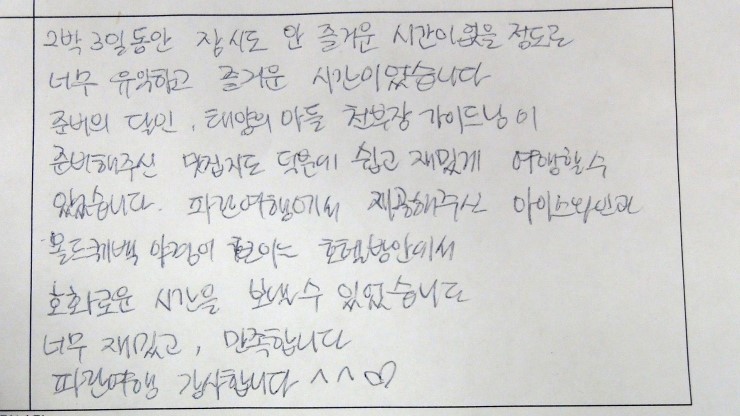 2박 3일동안 잠시도 안 즐거운 시간이 없을 정도로
너무 유익하고 즐거운 시간이었습니다
준비의 달인, 태양의 아들 천부장 가이드님이
준비해주신 맛집지도 덕분에 쉽고 재밌게 여행할 수
있었습니다. 파란여행에서 제공해주신 아이스와인과
올드퀘벡 야경이 보이는 호텔방안에서
호화로운 시간을 보낼 수 있었습니다
너무 재밌고, 만족합니다
파란여행 감사합니다 ^^♡